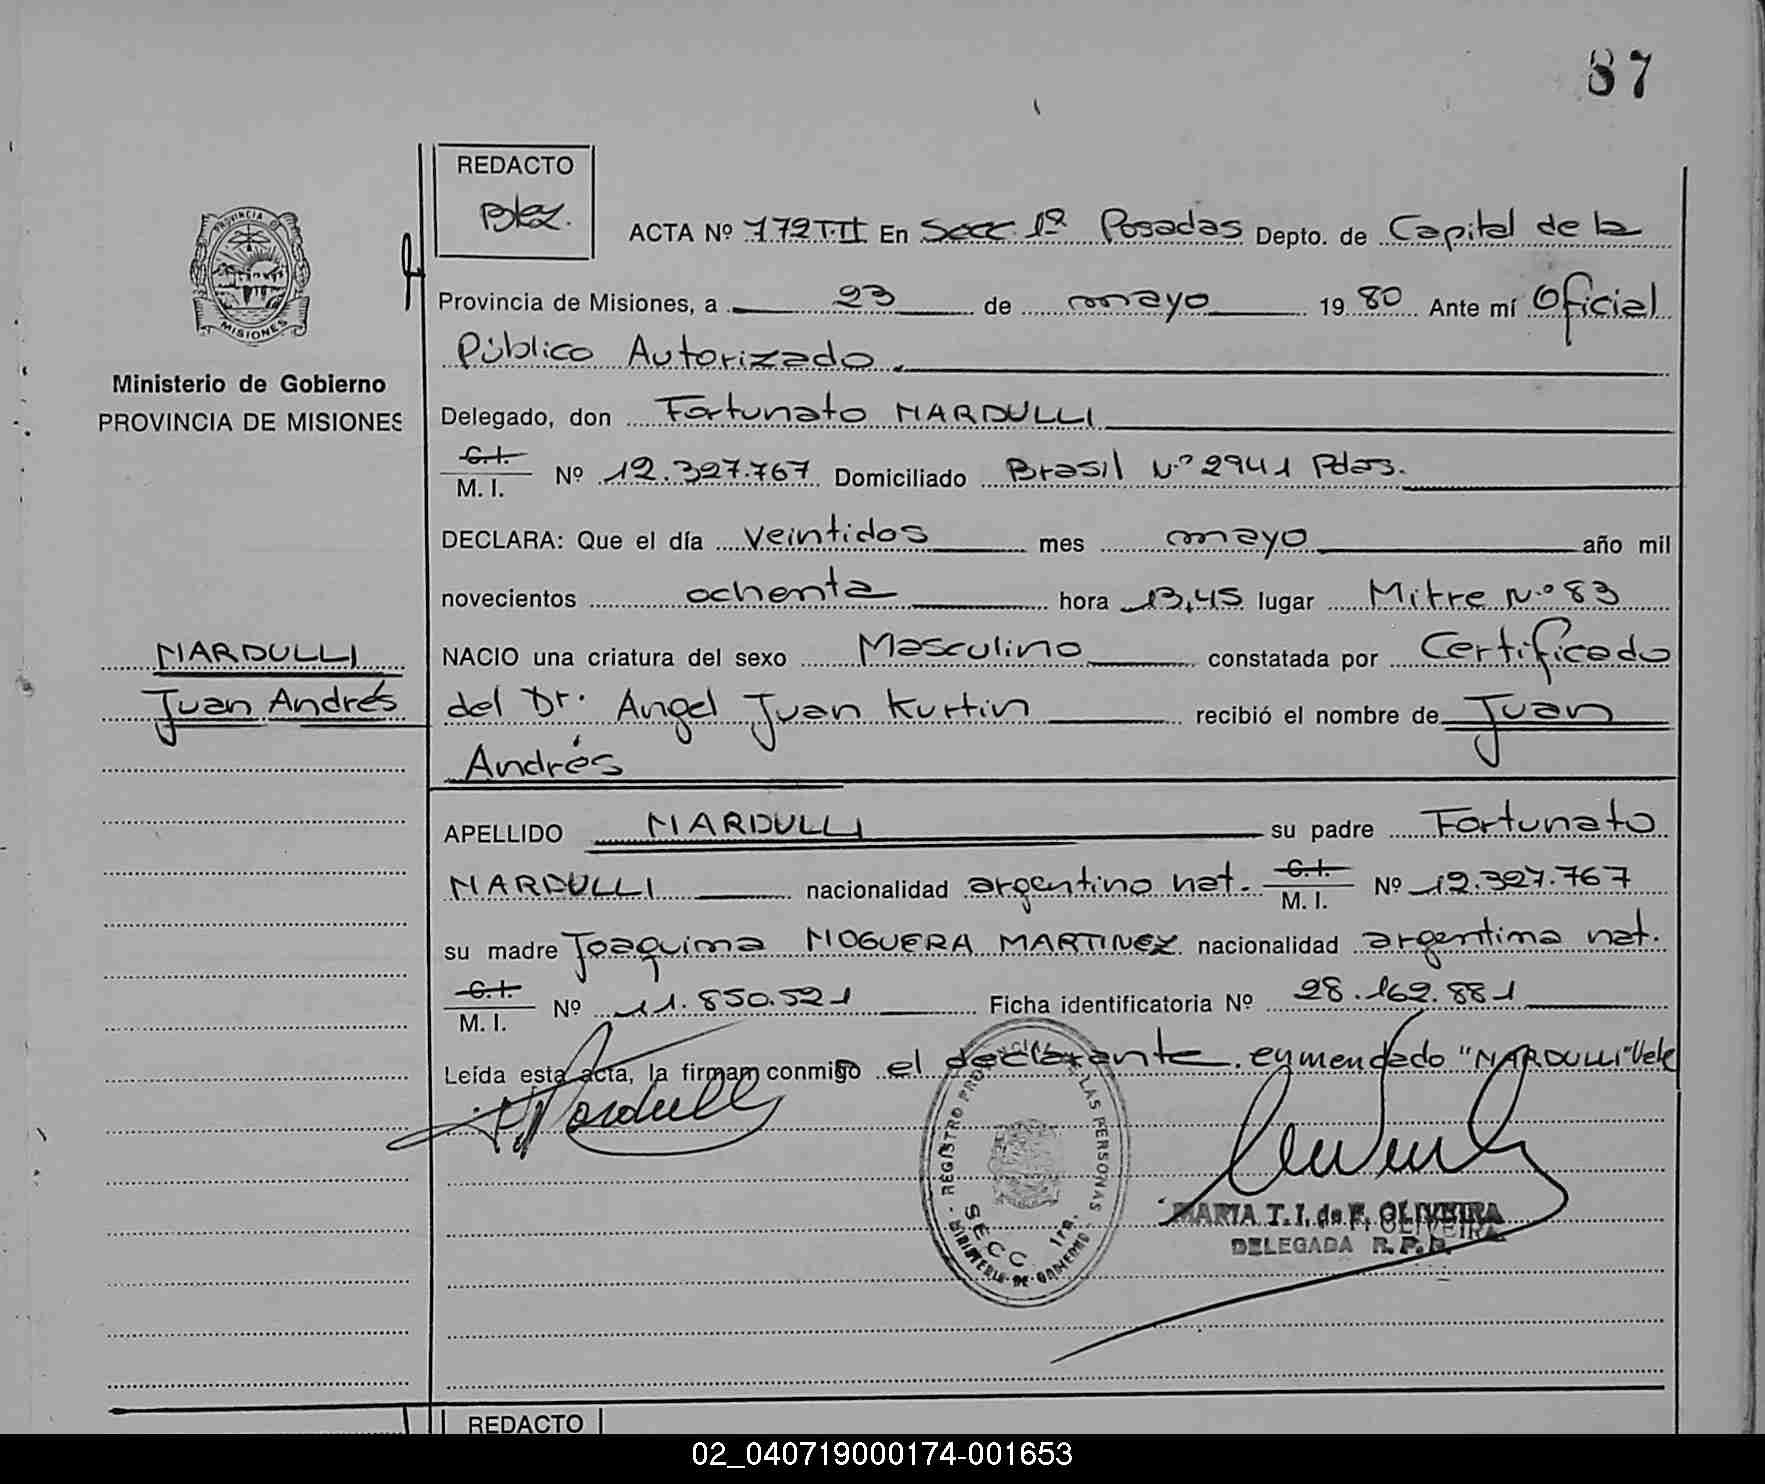 87
REDACTO
Blez.
PROVINCIA D
MISIONES
Ministerio de Gobierno
PROVINCIA DE MISIONES
ACTA Nº 172 T.II En Secc. 1ª Posadas Depto. de Capital de la
Provincia de Misiones, a 23 de mayo 19 80 Ante mí Oficial
Público Autorizado
Delegado, don Fortunato NARDULLI
C.I. M. I. Nº 12.327.767 Domiciliado Brasil N.º 2941 Pdas.
DECLARA: Que el día veintidos mes mayo año mil
novecientos ochenta hora 13,45 lugar Mitre N.º 83
NARDULLI
NACIO una criatura del sexo Masculino constatada por Certificado
Juan Andrés
del Dr. Angel Juan Kurtin recibió el nombre de Juan
Andrés
APELLIDO NARDULLI su padre Fortunato
NARDULLI nacionalidad argentino nat. C.I. M. I. Nº 12.327.767
su madre Joaquina NOGUERA MARTINEZ nacionalidad argentina nat.
C.I. M. I. Nº 11.850.521 Ficha identificatoria Nº 28.162.881
Leída esta acta, la firman conmigo el declarante. enmendado "NARDULLI" Vale
Nardulli
REGISTRO PROVINCIAL DE LAS PERSONAS
SECC 1ra.
MINISTERIO DE GOBIERNO
MARIA T. I. de F. OLIVEIRA
DELEGADA R. P. P.
REDACTO
02_040719000174-001653